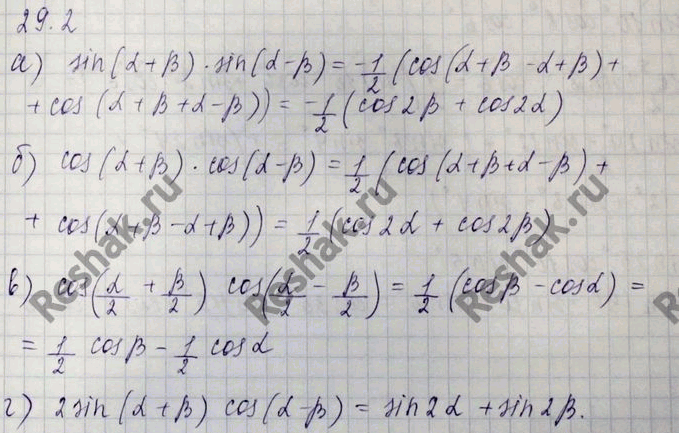 29.2
а) sin(α+β)·sin(α-β) = -1/2 (cos(α+β -α+β)+
+cos (α+β+α-β)) = -1/2 (cos2β + cos2α)
б) cos(α+β)·cos(α-β) = 1/2 (cos(α+β+α-β)+
+ cos(α+β-α+β)) = 1/2 (cos2α + cos2β)
в) cos(α/2 + β/2) cos(α/2 - β/2) = 1/2 (cosβ - cosα) =
= 1/2 cosβ - 1/2 cosα
г) 2sin(α+β) cos(α-β) = sin2α + sin2β.
Reshak.ru
Reshak.ru
Reshak.ru